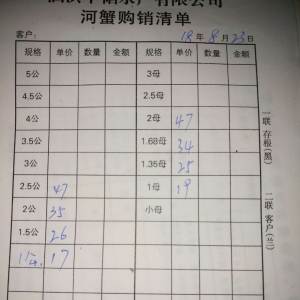 水产有限公司
河蟹购销清单
客户： 18年8月23日
规格 单价 数量 金额 规格 单价 数量 金额
5公 3母
4.5公 2.5母
4公 2母 47
3.5公 1.68母 34
3公 1.35母 25
2.5公 47 1母 19
2公 35 小母
1.5公 26
17
一联 存根(黑)
二联 客户(兰)